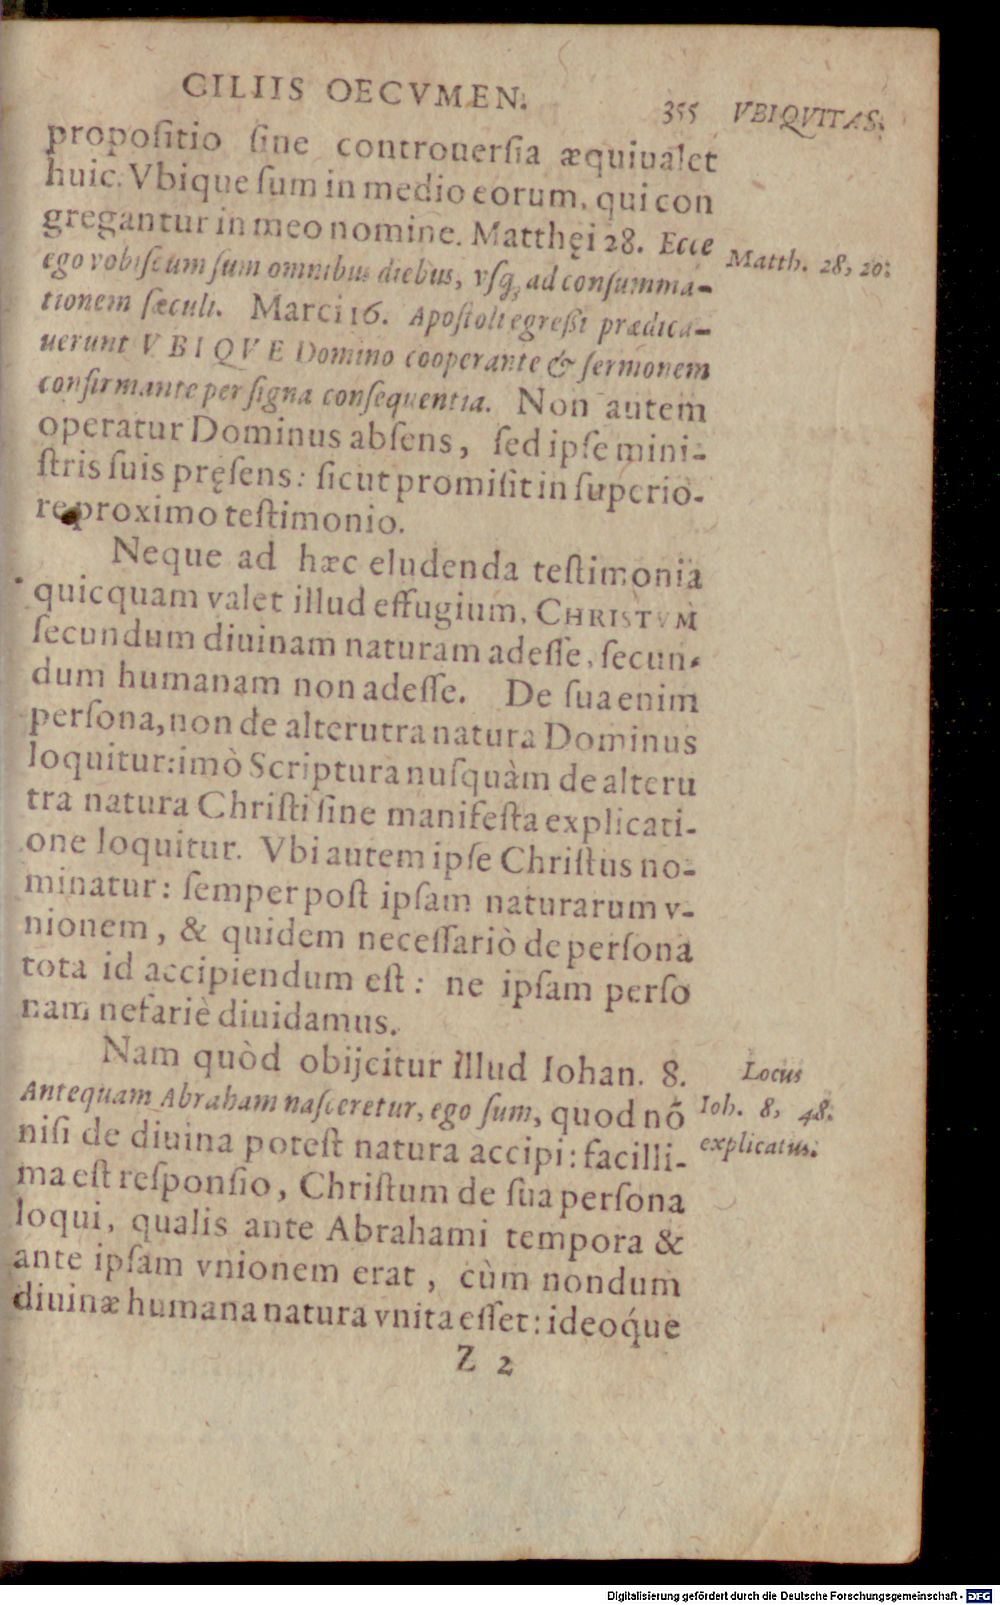 CILIIS OECVMEN. 355 VBIQVITAS.
propoſitio ſine controuerſia æquiualet
huic. Vbique ſum in medio eorum, qui con
gregantur in meo nomine. Matthęi 28. Ecce
ego vobiſcum ſum omnibus diebus, vſq; ad conſumma-
Matth. 28, 20:
tionem ſæculi. Marci 16. Apoſtoli egreßi prædica-
uerunt V B I Q V E Domino cooperante & ſermonem
confirmante per ſigna conſequentia. Non autem
operatur Dominus abſens, ſed ipſe mini-
ſtris ſuis pręſens: ſicut promiſit in ſuperio-
re proximo teſtimonio.
Neque ad hæc eludenda teſtimonia
quicquam valet illud effugium, CHRISTVM
ſecundum diuinam naturam adeſſe, ſecun-
dum humanam non adeſſe. De ſua enim
perſona, non de alterutra natura Dominus
loquitur: imò Scriptura nuſquàm de alteru
tra natura Chriſti ſine manifeſta explicati-
one loquitur. Vbi autem ipſe Chriſtus no-
minatur: ſemper poſt ipſam naturarum v-
nionem, & quidem neceſſariò de perſona
tota id accipiendum eſt: ne ipſam perſo
nam nefariè diuidamus.
Nam quòd obijcitur illud Iohan. 8.
Antequam Abraham naſceretur, ego ſum, quod nō
niſi de diuina poteſt natura accipi: facilli-
Locus
Ioh. 8, 48.
explicatus:
ma eſt reſponſio, Chriſtum de ſua perſona
loqui, qualis ante Abrahami tempora &
ante ipſam vnionem erat, cùm nondum
diuinæ humana natura vnita eſſet: ideoq́ue
Z 2
Digitalisierung gefördert durch die Deutsche Forschungsgemeinschaft - DFG